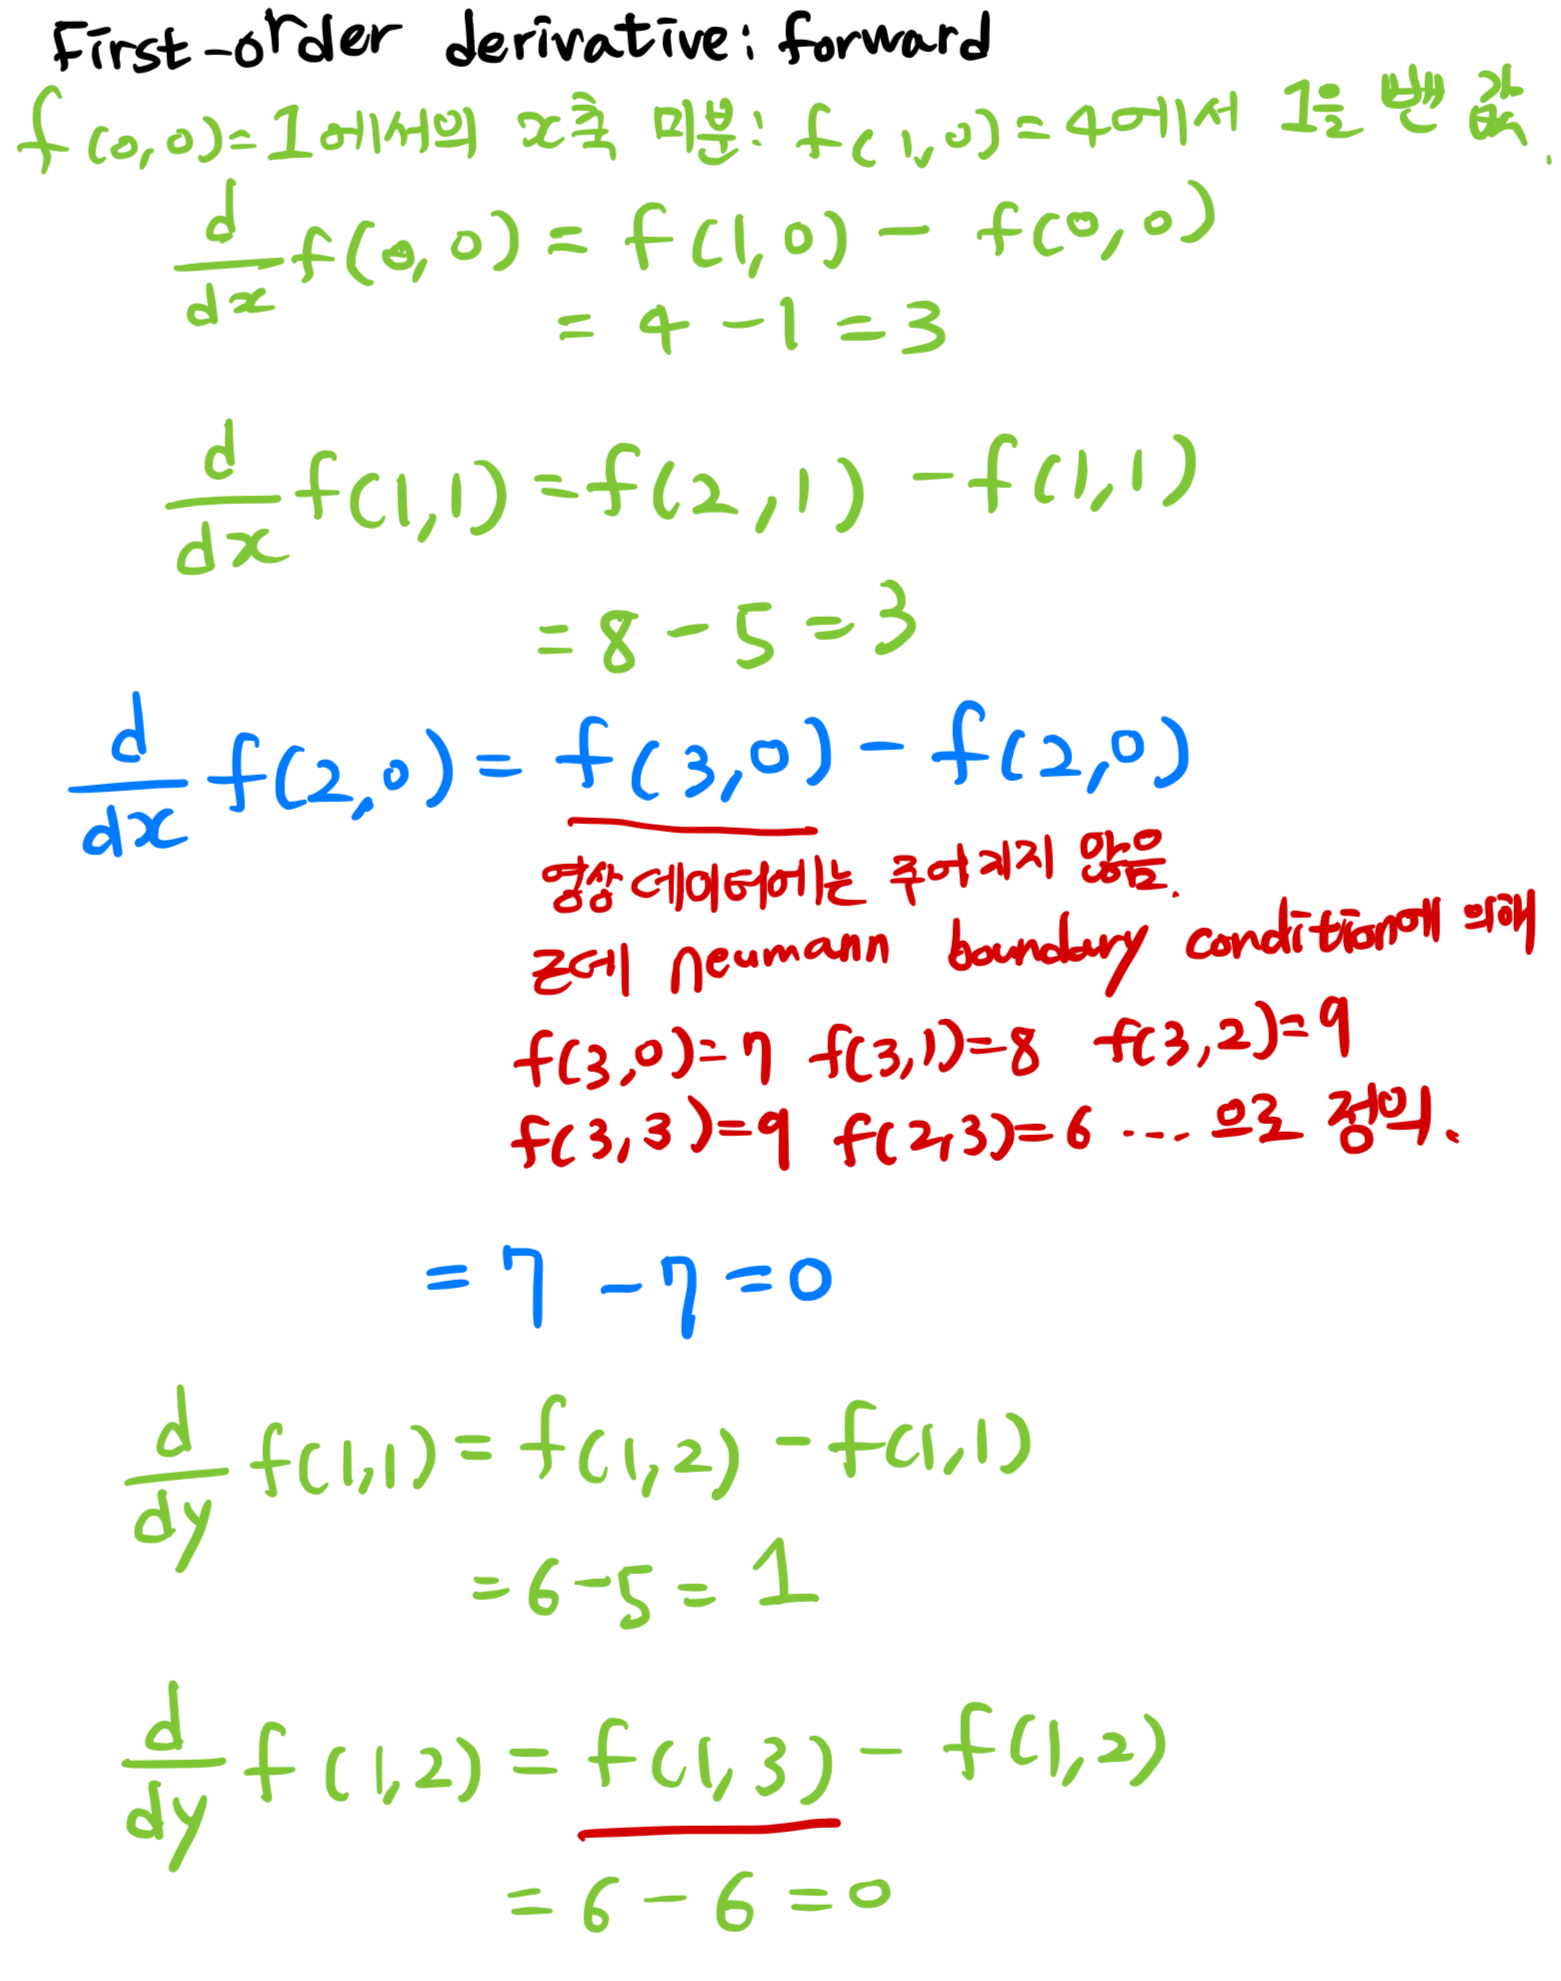 First-order derivative: forward
f(0,0)=1에서의 x축 미분: f(1,0)=4에서 1을 뺀 값.
d/dx f(0,0) = f(1,0) - f(0,0)
= 4 - 1 = 3
d/dx f(1,1) = f(2,1) - f(1,1)
= 8 - 5 = 3
d/dx f(2,0) = f(3,0) - f(2,0)
영상 데이터에는 주어지지 않음.
근데 neumann boundary condition에 의해
f(3,0)=7 f(3,1)=8 f(3,2)=9
f(3,3)=9 f(2,3)=6 ... 으로 정의.
= 7 - 7 = 0
d/dy f(1,1) = f(1,2) - f(1,1)
= 6 - 5 = 1
d/dy f(1,2) = f(1,3) - f(1,2)
= 6 - 6 = 0